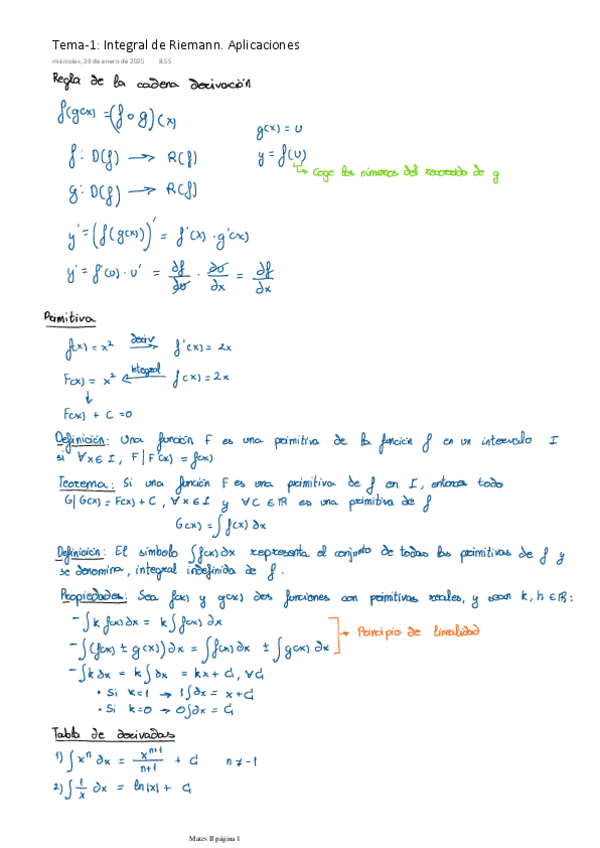 Tema-1: Integral de Riemann. Aplicaciones
miércoles, 29 de enero de 2025 8:55
Regla de la cadena derivación
f(g(x)) = (f ∘ g)(x)
g(x) = u
f: D(f) → R(f)
y = f(u)
↳ Coge los números del recorrido de g
g: D(f) → R(f)
y' = (f(g(x)))' = f'(x) · g'(x)
y' = f'(u) · u' = ∂f/∂u · ∂u/∂x = ∂f/∂x
Primitiva
f(x) = x² deriv→ f'(x) = 2x
F(x) = x² ←integral f(x) = 2x
↓
F(x) + C = 0
Definición: Una función F es una primitiva de la función f en un intervalo I
si ∀x ∈ I, F | F'(x) = f(x)
Teorema: Si una función F es una primitiva de f en I, entonces todo
G | G(x) = F(x) + C, ∀x ∈ I y ∀C ∈ ℝ es una primitiva de f
G(x) = ∫f(x) ∂x
Definición: El símbolo ∫f(x) ∂x representa el conjunto de todas las primitivas de f y
se denomina, integral indefinida de f.
Propiedades: Sea f(x) y g(x) dos funciones con primitivas reales, y sean k, h ∈ ℝ:
- ∫k f(x) ∂x = k ∫f(x) ∂x
→ Principio de linealidad
- ∫(f(x) ± g(x)) ∂x = ∫f(x) ∂x ± ∫g(x) ∂x
- ∫k ∂x = k ∫∂x = kx + C, ∀C
• Si k=1 → 1∫∂x = x + C
• Si k=0 → 0∫∂x = C
Tabla de derivadas
1) ∫xⁿ ∂x = xⁿ⁺¹/n+1 + C n ≠ -1
2) ∫1/x ∂x = ln|x| + C
Mates II página 1